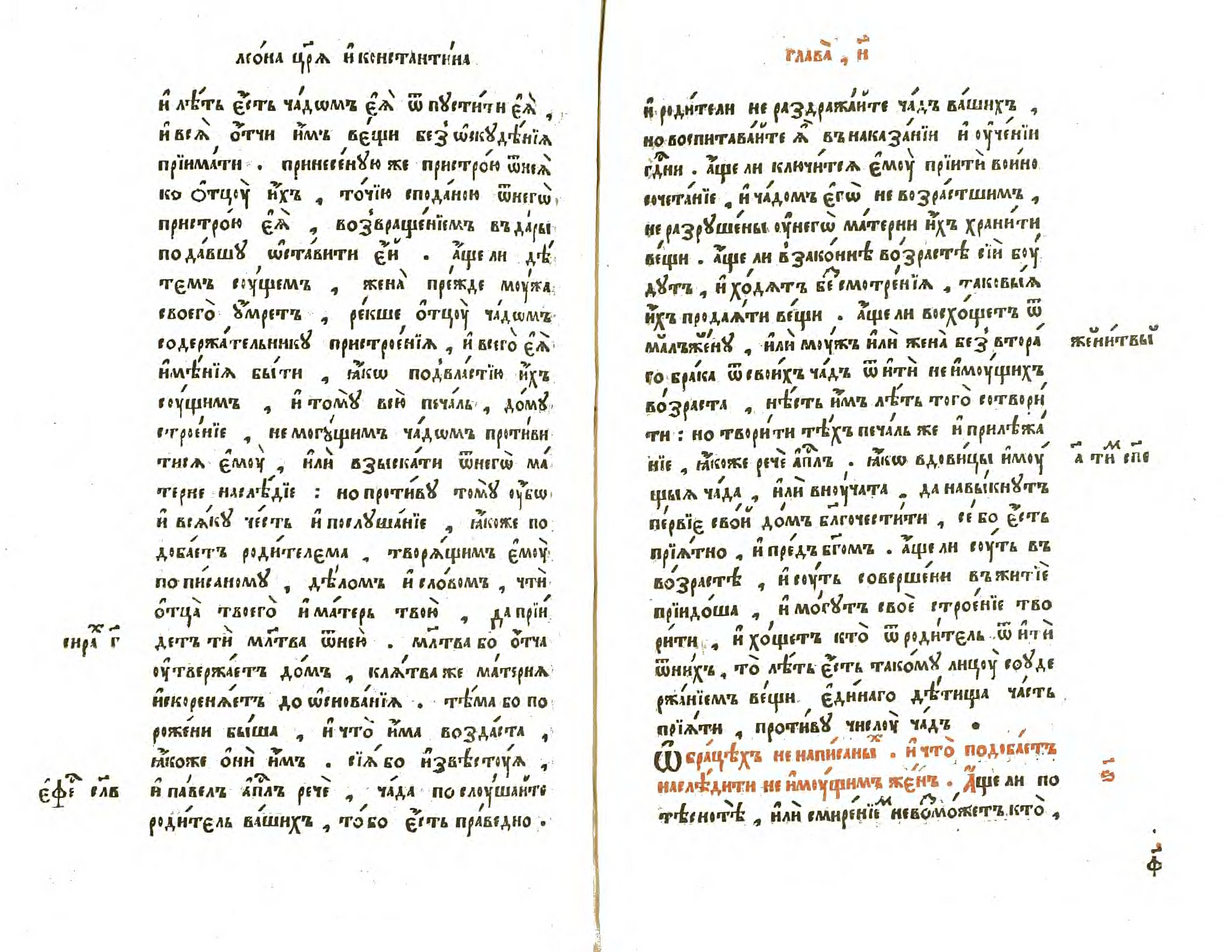 лео́на цр҃ѧ и҆ константи́на
и҆ лѣ́ть є҆́сть ча́дѡмъ є҆ѧ̀ ѿпусти́ти є҆ѧ̀ ,
и҆ всѧ̀ ѻ҆́тчи и҆̀мъ ве́щи без̾ ѡ҆скудѣ́нїѧ
прїима́ти . принесе́ную же пристро́ю ѿнеѧ̀
ко ѻ҆тцоу̀ и҆́хъ , то́чїю сподано́ю ѿнегѡ̀
пристро́ю є҆ѧ̀ , возвраще́нїемъ въ да́ры
пода́вшу ѡ҆ста́вити є҆́й . а҆́ще ли дѣ́
темъ соу́щемъ , жена̀ пре́жде моу́жа
своего̀ у҆́мретъ , ре́кше ѻ҆тцоу̀ ча́дѡмъ
содержа́тельнику пристрое́нїѧ , и҆ всего̀ є҆ѧ̀
и҆мѣ́нїѧ бы́ти , ꙗ҆́кѡ под̾вла́стїю и҆́хъ
соу́щимъ , и҆ то́му̀ всю̀ печа́ль , до́му
строе́нїе , не могу́щимъ ча́дѡмъ проти́ви
тисѧ є҆моу̀ , и҆лѝ взыска́ти ѿнегѡ̀ ма́
терне наслѣ́дїе : но проти́ву то́му̀ оу҆́бѡ
и҆ всѧ́ку че́сть и҆ послуша́нїе , ꙗ҆́коже по
доба́етъ роди́телема , творѧ́щимъ є҆моу̀
по писаному , дѣ́ломъ и҆ сло́вомъ , чтѝ
ѻ҆тца̀ твоего̀ и҆ ма́терь твою̀ , да прїи́
сира́х г҃
детъ тѝ мл҃тва ѿнею̀ . мл҃тва бо ѻ҆́тча
оу҆твержа́етъ до́мъ , клѧ́тва же ма́тернѧ
и҆скоренѧ́етъ до ѡ҆снова́нїѧ . тѣ́ма бо по
рожени бы́ша , и҆ что̀ и҆́ма возда́ста ,
ꙗ҆́коже ѻ҆нѝ и҆̀мъ . сїѧ̀ бо и҆звѣстоу́ѧ ,
є҆фе́ сл҃в
и҆ па́велъ а҆пⷭ҇лъ речѐ , ча́да послоу́шайте
роди́тель ва́шихъ , то́ бо є҆́сть пра́ведно .
глава̀ , и҃
и҆ роди́тели не раздража́йте ча́дъ ва́шихъ ,
но воспитава́йте ѧ҆̀ въ наказа́нїи и҆ оу҆че́нїи
гдⷭ҇ни . а҆́ще ли ключи́тсѧ є҆моу̀ прїитѝ во и҆́но
сочета́нїе , и҆ ча́дом є҆гѡ̀ не возра́стшимъ ,
не разруше́ны оу҆негѡ̀ ма́терни и҆́хъ храни́ти
ве́щи . а҆́ще ли в̾ зако́ннѣ во́зрастѣ сїѝ боу́
дутъ , и҆ хо́дѧтъ без̾смотре́нїѧ , таковы́ѧ
и҆́хъ продаѧ́ти ве́щи . а҆́ще ли восхо́щетъ ѿ
ма́лъже́ну , и҆лѝ моу́жъ и҆лѝ жена̀ без̾ втора́
жени́твы
го бра́ка ѿ свои́хъ ча́дъ ѿитѝ не и҆моу́щихъ
во́зраста , нѣ́сть и҆̀мъ лѣ́ть того̀ сотвори́
ти : но твори́ти тѣ́хъ печа́ль же и҆ прилѣжа́
нїе , ꙗ҆́коже речѐ а҆пⷭ҇лъ . ꙗ҆́кѡ вдови́цы и҆моу́
а҃ тим спе
щыѧ ча́да , и҆лѝ вноу́чата , да навы́кнутъ
пе́рвїе сво́й до́мъ бл҃гочести́ти , се́ бо є҆́сть
прїѧ́тно , и҆ пред̾ бг҃омъ . а҆́ще ли соу́ть въ
во́зрастѣ , и҆ соу́ть соверше́ни въ житїѐ
прїидо́ша , и҆ мо́гутъ своѐ строе́нїе тво
ри́ти , и҆ хо́щетъ кто̀ ѿ роди́тель ѿитѝ
ѿни́хъ , то̀ лѣ́ть є҆́сть тако́му лицоу̀ соуде
ржа́нїемъ ве́щи є҆ди́наго дѣ́тища ча́сть
прїѧ́ти , проти́ву числоу̀ ча́дъ .
Ѡ҆ бра́цѣхъ не напи́саных . и҆ что̀ подоба́етъ
наслѣ́дити не и҆моу́щимъ же́нъ . А҆́ще ли по
ѕ҃
тѣсно́тѣ , и҆лѝ смире́нїем невозмо́жетъ кто̀ ,
ф҃